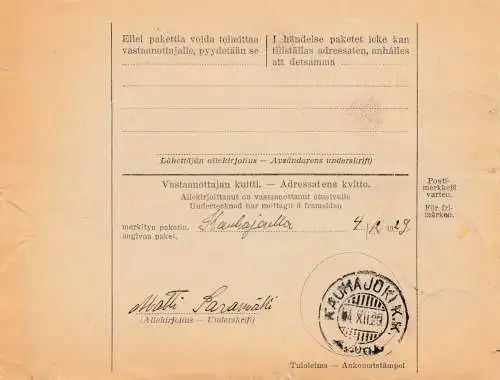 Ellei pakettia voida toimittaa
vastaanottajalle, pyydetään se
I händelse paketet icke kan
tillställas adressaten, anhålles
att detsamma
Lähettäjän allekirjoitus — Avsändarens underskrift)
Vastaanottajan kuitti. — Adressatens kvitto.
Allekirjoittanut on vastaanottanut etusivulle
Undertecknad har mottagit å framsidan
merkityn paketin.
angivna paket.
Kauhajoella 4/12 1929
Posti-
merkkejä
varten.
För fri-
märken.
Matti Saramäki
(Allekirjoitus — Underskrift)
KAUHAJOKI K.K.
04 XII.29
Tuloleima — Ankomststämpel